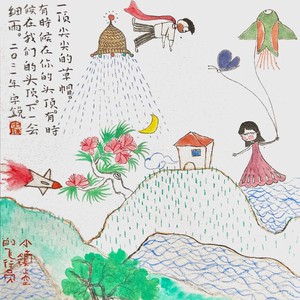 一顶尖尖的草帽。
有时候在你的头顶。有时
候在我们的头顶。下一会
细雨。二〇二一年
小镇上空
的飞行员